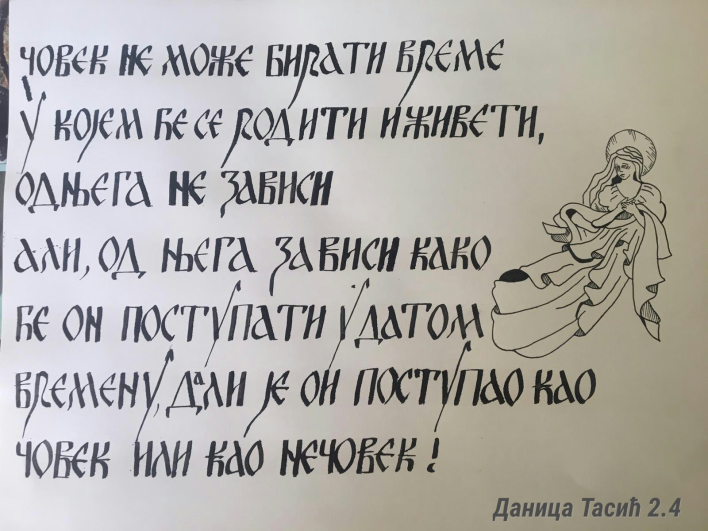 ЧОВЕК НЕ МОЖЕ БИРАТИ ВРЕМЕ
У КОЈЕМ ЋЕ СЕ РОДИТИ И ЖИВЕТИ,
ОД ЊЕГА НЕ ЗАВИСИ
АЛИ, ОД ЊЕГА ЗАВИСИ КАКО
ЋЕ ОН ПОСТУПАТИ У ДАТОМ
ВРЕМЕНУ, ДАЛИ ЈЕ ОН ПОСТУПАО КАО
ЧОВЕК ИЛИ КАО НЕЧОВЕК!
Даница Тасић 2.4